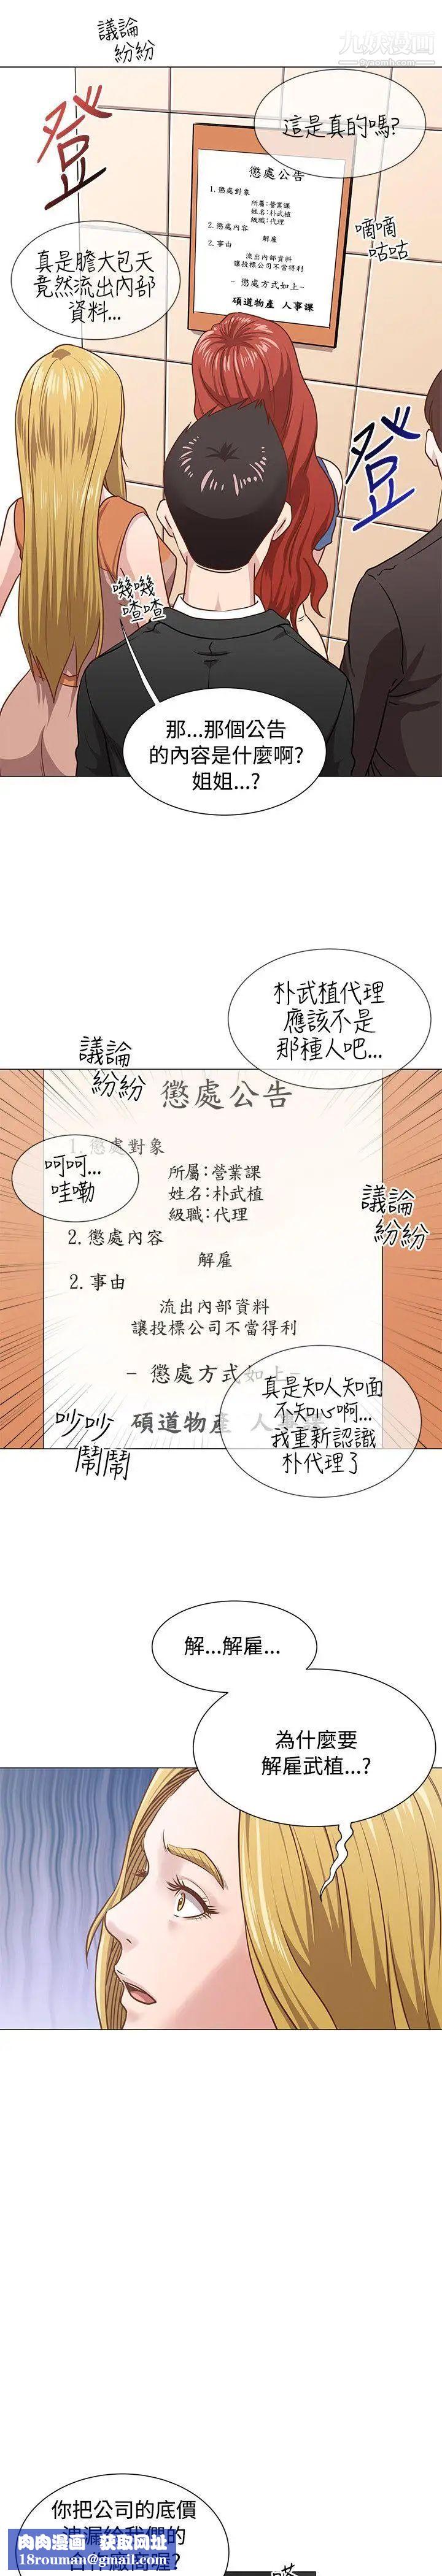 議論
紛紛
九妖漫画
登
這是真的嗎?
懲處公告
1.懲處對象
所屬:營業課
姓名:朴武植
級職:代理
2.懲處內容
解雇
2.事由
流出內部資料
讓投標公司不當得利
- 懲處方式如上-
碩道物產 人事課
嘀嘀
咕咕
真是膽大包天
竟然流出內部
資料...
登
嘰嘰
喳喳
那...那個公告
的內容是什麼啊?
姐姐...?
朴武植代理
應該不是
那種人吧...
議論
紛紛
懲處公告
1.懲處對象
呵呵...
哇嘞
所屬:營業課
姓名:朴武植
級職:代理
議論
紛紛
2.懲處內容
解雇
2.事由
流出內部資料
讓投標公司不當得利
- 懲處方式如上-
真是知人知面
不知心啊...
我重新認識
朴代理了
吵吵
鬧鬧
碩道物產 人事課
解...解雇...
為什麼要
解雇武植...?
你把公司的底價
洩漏給我們的
合作廠商喔?
肉肉漫画 获取网址
18rouman@gmail.com